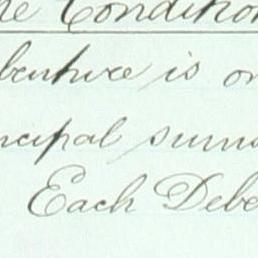 he Condition
benture is on
ncipal sums
Each Debe